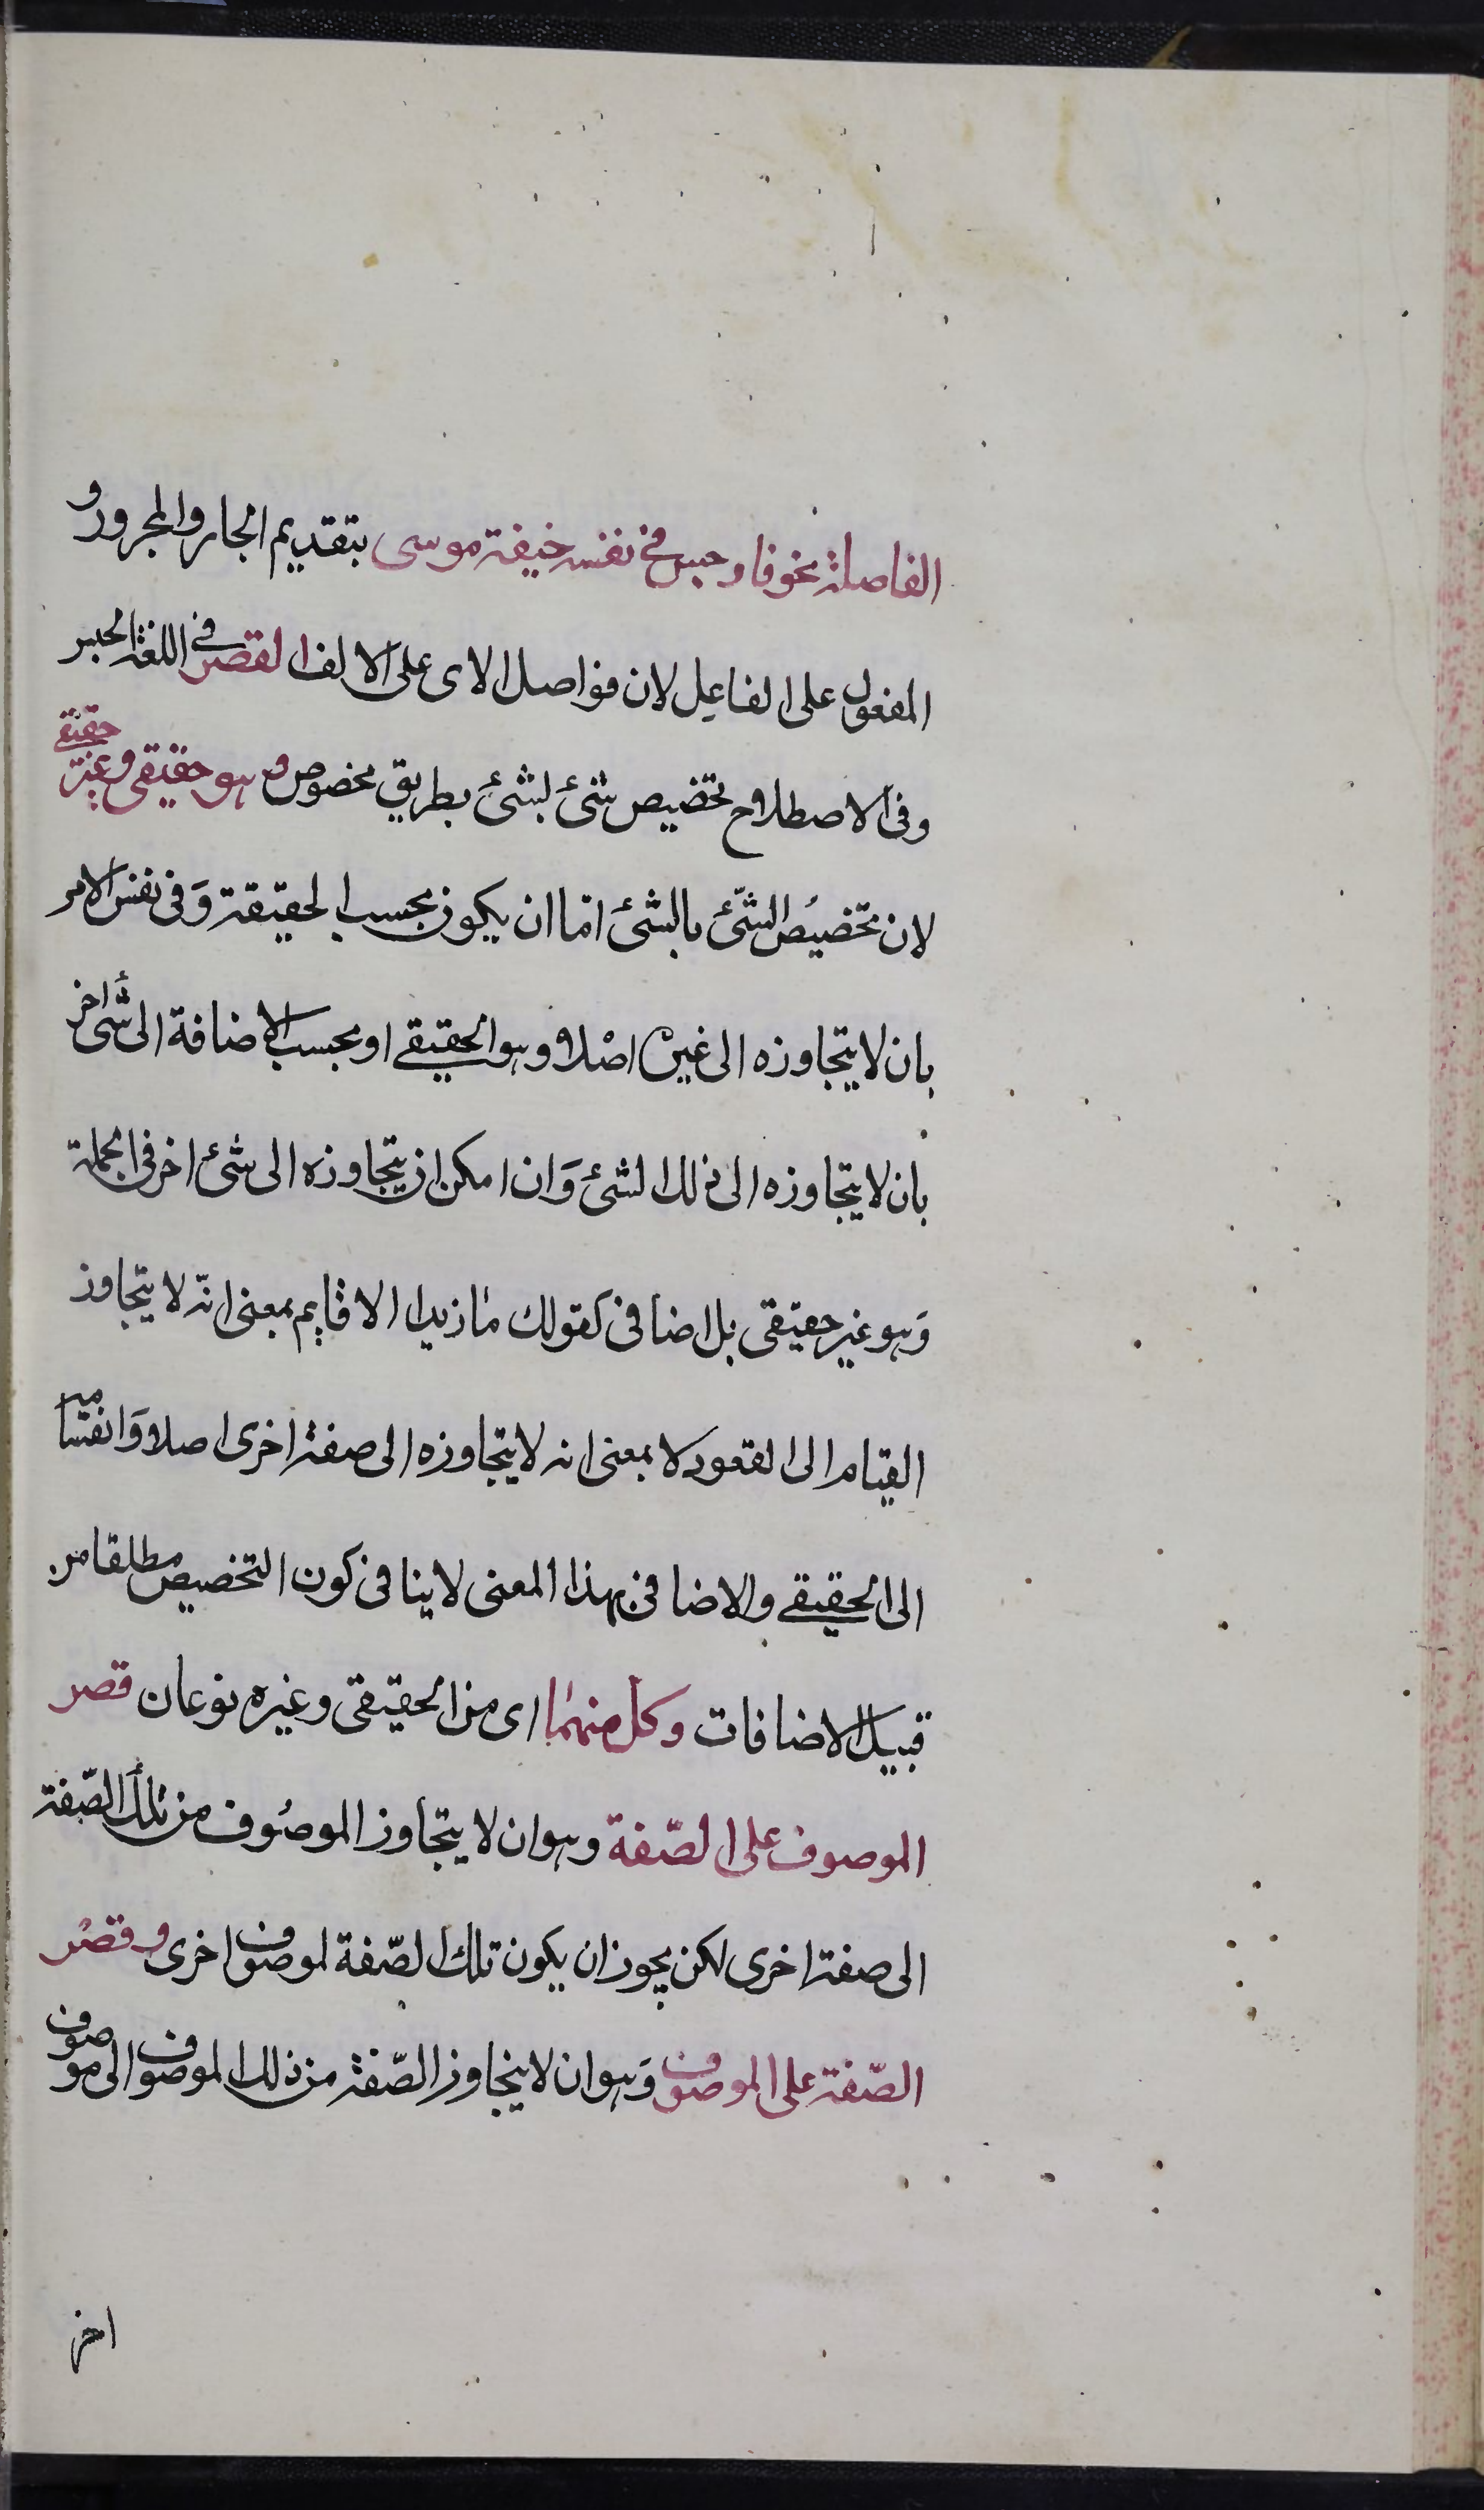 الفاصلة نحو فاوجس في نفسه خيفة موسى بتقديم الجار والمجرور و
المفعول على الفاعل لان فواصل الاى على الالف القصر في اللغة الحبس
وفى الاصطلاح تخصيص شئ بشئ بطريق مخصوص وهو حقيقى وغير حقيقي
لان تخصيص الشّئ بالشئ امّا ان يكون بحسب الحقيقة وَفى نفس الامر
بان لا يتجاوزه الى غيره اصْلا وهو الحقيقي او بحسب الاضافة الى شئ اخر
بان لا يتجاوزه الى ذلك الشئ وَان امكن ان يتجاوزه الى شئ اخر فى الجملة
وَهو غير حقيقى بل اضافى كقولك مَا زيد الا قايم بمعنى انّه لا يتجاوز
القيام الى القعود لا بمعنى انه لا يتجاوزه الى صفة اخرى اصلا وَانقسامه
الى الحقيقي والاضافى بهذا المعنى لا ينافى كون التخصيص مطلقا من
قبيل الاضافات وكل منهمَا اى من الحقيقى وغيره نوعان قصر
الموصوف على الصّفة وهو ان لا يتجاوز الموصُوف من تلك الصّفة
الى صفة اخرى لكن يجوز ان يكون تلك الصّفة لموصوف اخرى و قصْر
الصّفة على الموصوف وَهو ان لا يتجاوز الصّفة من ذلك الموصوف الى موصوف
اخر